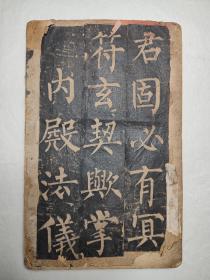 君固必有冥
符玄契歟掌
内殿法儀